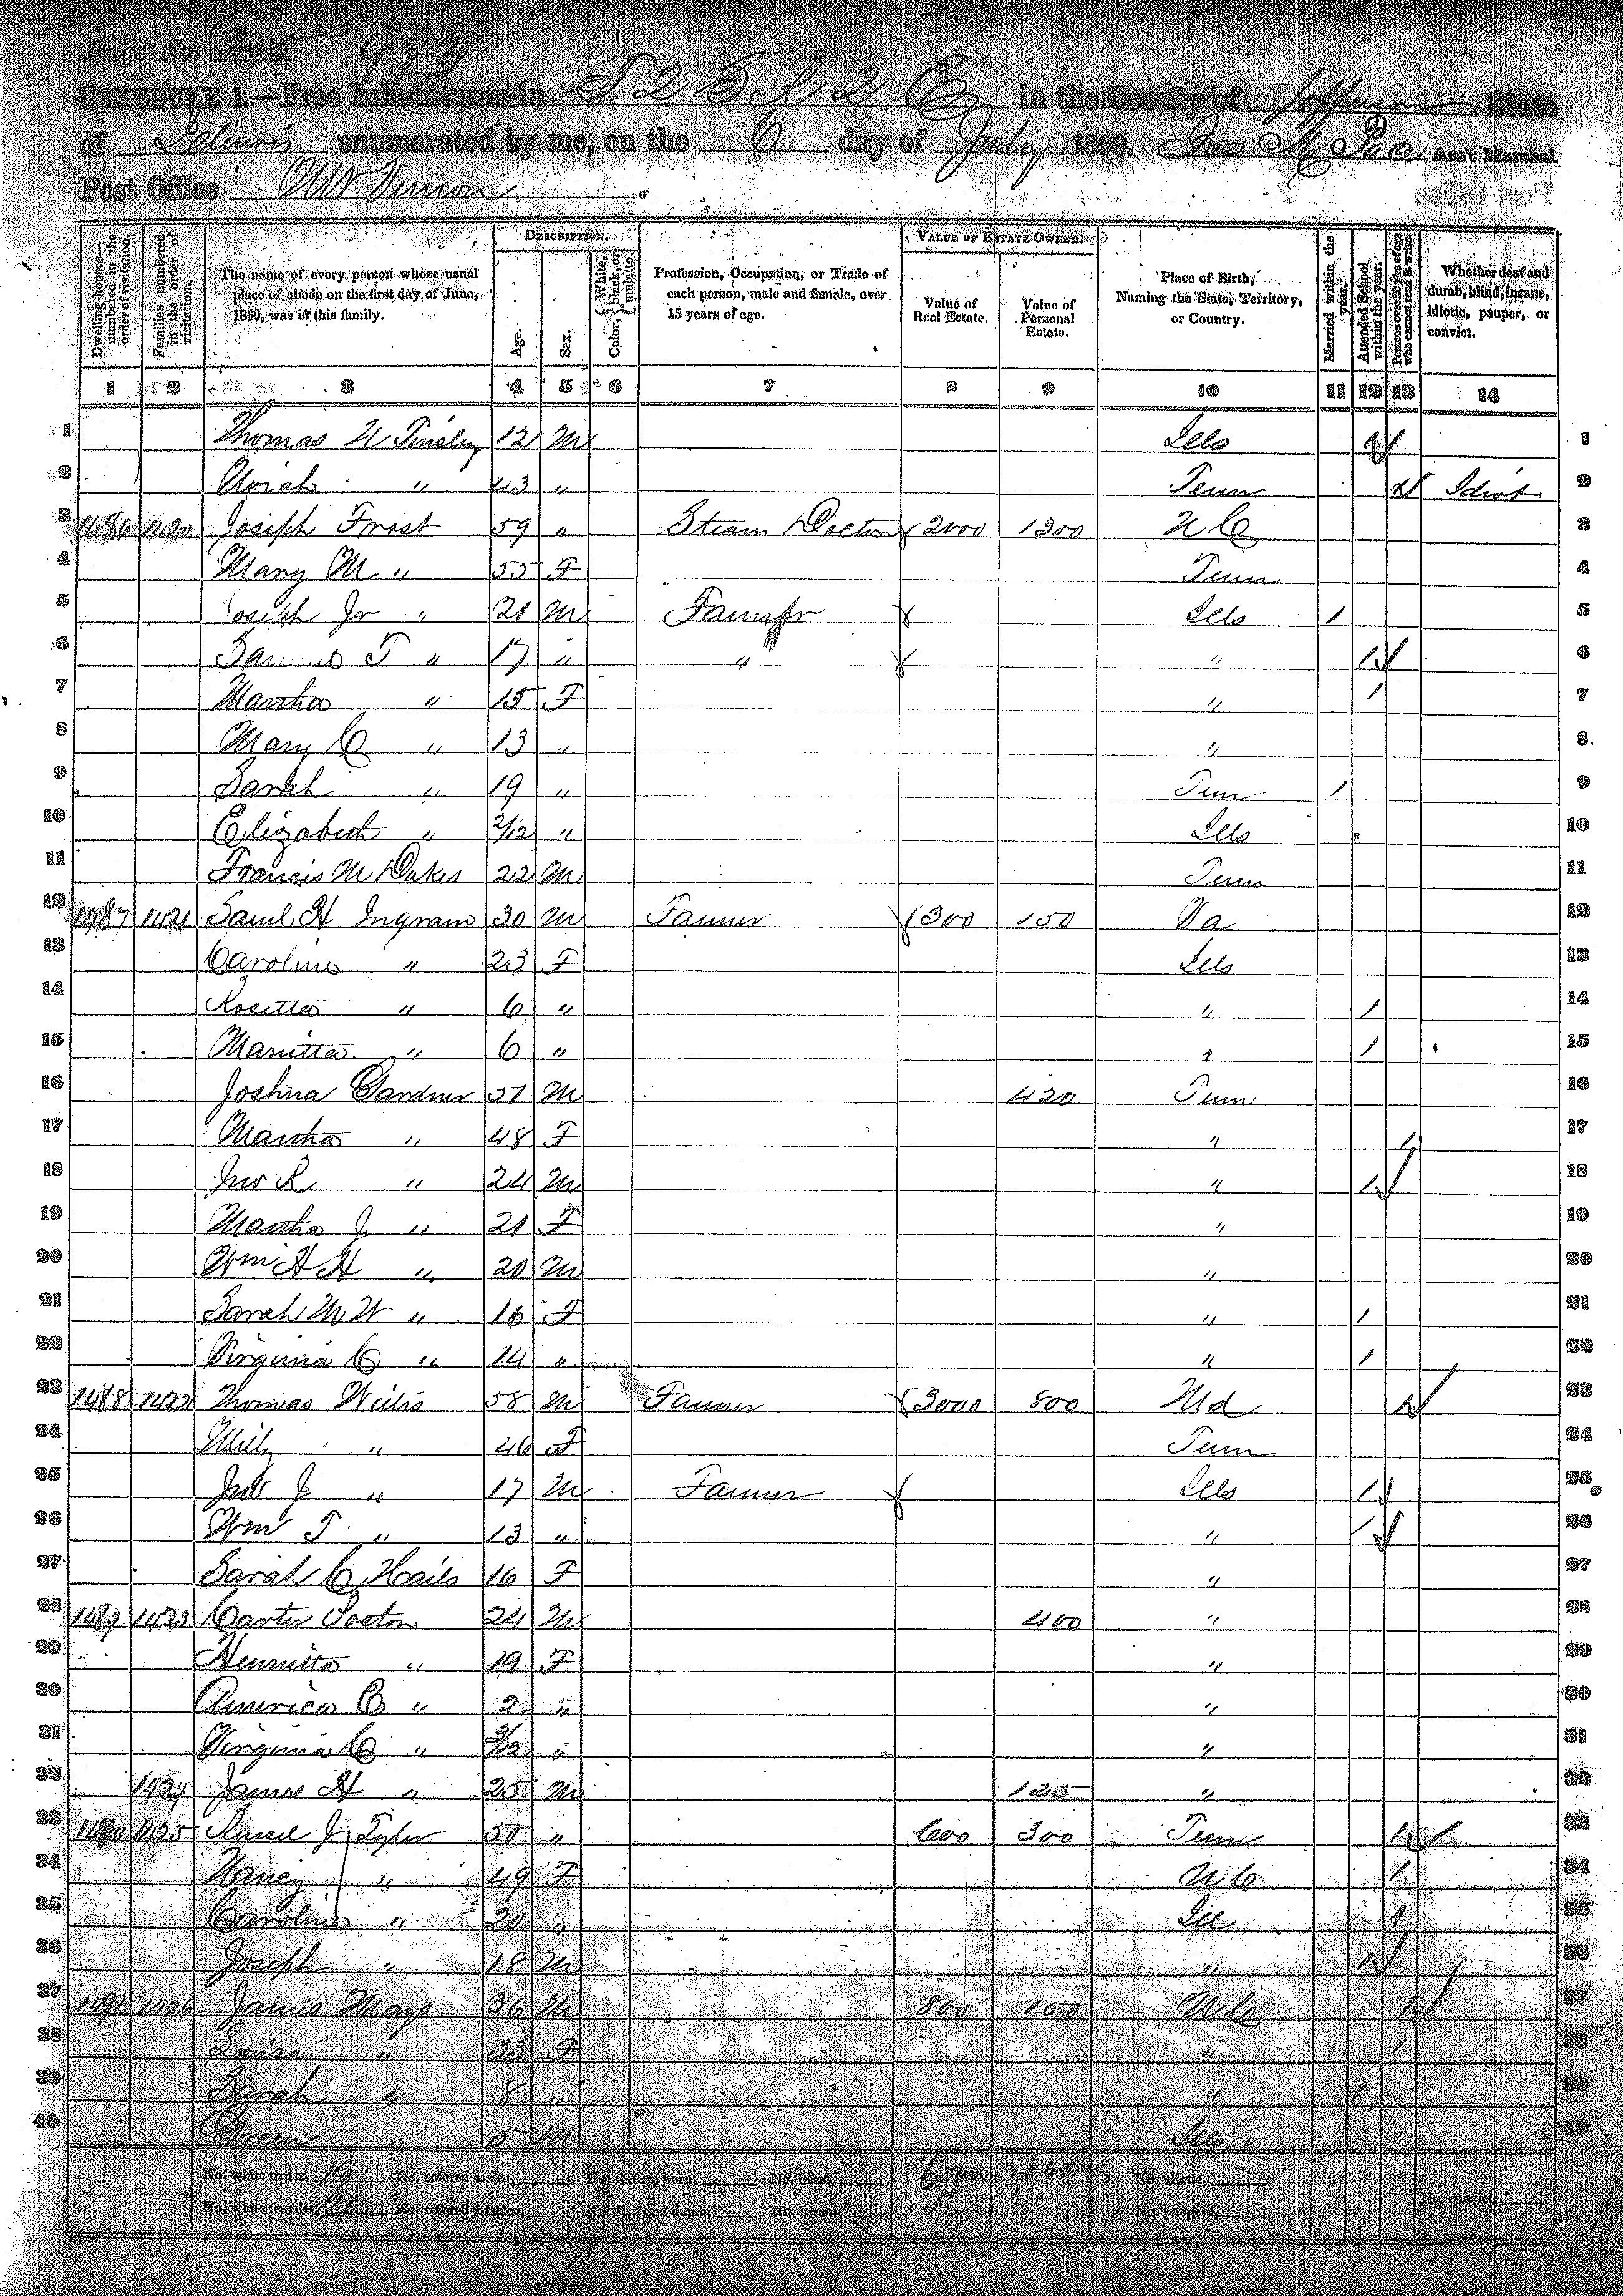 Page No. 993
SCHEDULE 1.—Free Inhabitants in T 2 S R 2 E in the County of Jefferson State
of Illinois enumerated by me, on the 6 day of July 1860. Ass't Marshal.
Post Office Mt Vernon.
Dwelling-houses—numbered in the order of visitation.
Families numbered in the order of visitation.
The name of every person whose usual place of abode on the first day of June, 1860, was in this family.
DESCRIPTION.
Age.
Sex.
Color, { White, black, or mulatto.
Profession, Occupation, or Trade of each person, male and female, over 15 years of age.
VALUE OF ESTATE OWNED.
Value of Real Estate.
Value of Personal Estate.
Place of Birth, Naming the State, Territory, or Country.
Married within the year.
Attended School within the year.
Persons over 20 y'rs of age who cannot read & write.
Whether deaf and dumb, blind, insane, idiotic, pauper, or convict.
1 2 3 4 5 6 7 8 9 10 11 12 13 14
1 Thomas Tinsley 12 M Ills 1 1
2 Uriah " 43 " Tenn 1 Idiot 2
3 1486 1420 Joseph Frost 59 " Steam Doctor 2000 1300 N C 3
4 Mary M " 55 F Tenn 4
5 Joseph Jr " 21 M Farmer Ills 1 5
6 T " 17 " " " 1 6
7 Martha " 15 F " 1 7
8 Mary C " 13 " " 8
9 Sarah " 19 " Tenn 1 9
10 Elizabeth " 2/12 " Ills 10
11 Francis M Dakes 22 M Tenn 11
12 1487 1421 Saml H Ingram 30 M Farmer 300 150 Va 12
13 Caroline " 23 F Ills 13
14 Rosetta " 6 " " 1 14
15 Maritta " 6 " " 1 15
16 Joshua Gardner 51 M 420 Tenn 16
17 Martha " 48 F " 1 17
18 Jno R " 24 M " 1 18
19 Martha J " 21 F " 19
20 Wm H H " 20 M " 20
21 Sarah M W " 16 F " 1 21
22 Virginia C " 14 " " 1 22
23 1488 1422 Thomas 58 M Farmer 3000 800 Md 1 23
24 Milly " 46 F Tenn 24
25 Jno J " 17 M Farmer Ills 1 25
26 Wm T " 13 " " 1 26
27 Sarah C Hails 16 F " 27
28 1489 1423 Carter 24 M 400 " 28
29 Henrietta " 19 F " 29
30 America C " 2 " " 30
31 Virginia C " 3/12 " " 31
32 1424 James H " 25 M 125 " 32
33 1490 1425 J Tyler 51 " 600 300 Tenn 1 33
34 Nancy " 49 F N C 1 34
35 Caroline " 20 " Ill 1 35
36 Joseph " 18 M " 1 36
37 1491 1426 James Mays 36 M 800 150 N C 1 37
38 Louisa " 33 F " 1 38
39 Sarah " 8 " " 1 39
40 Green " 5 M Ills 40
No. white males, 19 No. colored males, No. foreign born, No. blind, 6,700 3,645 No. idiotic,
No. white females, 21 No. colored females, No. deaf and dumb, No. insane, No. paupers, No. convicts,